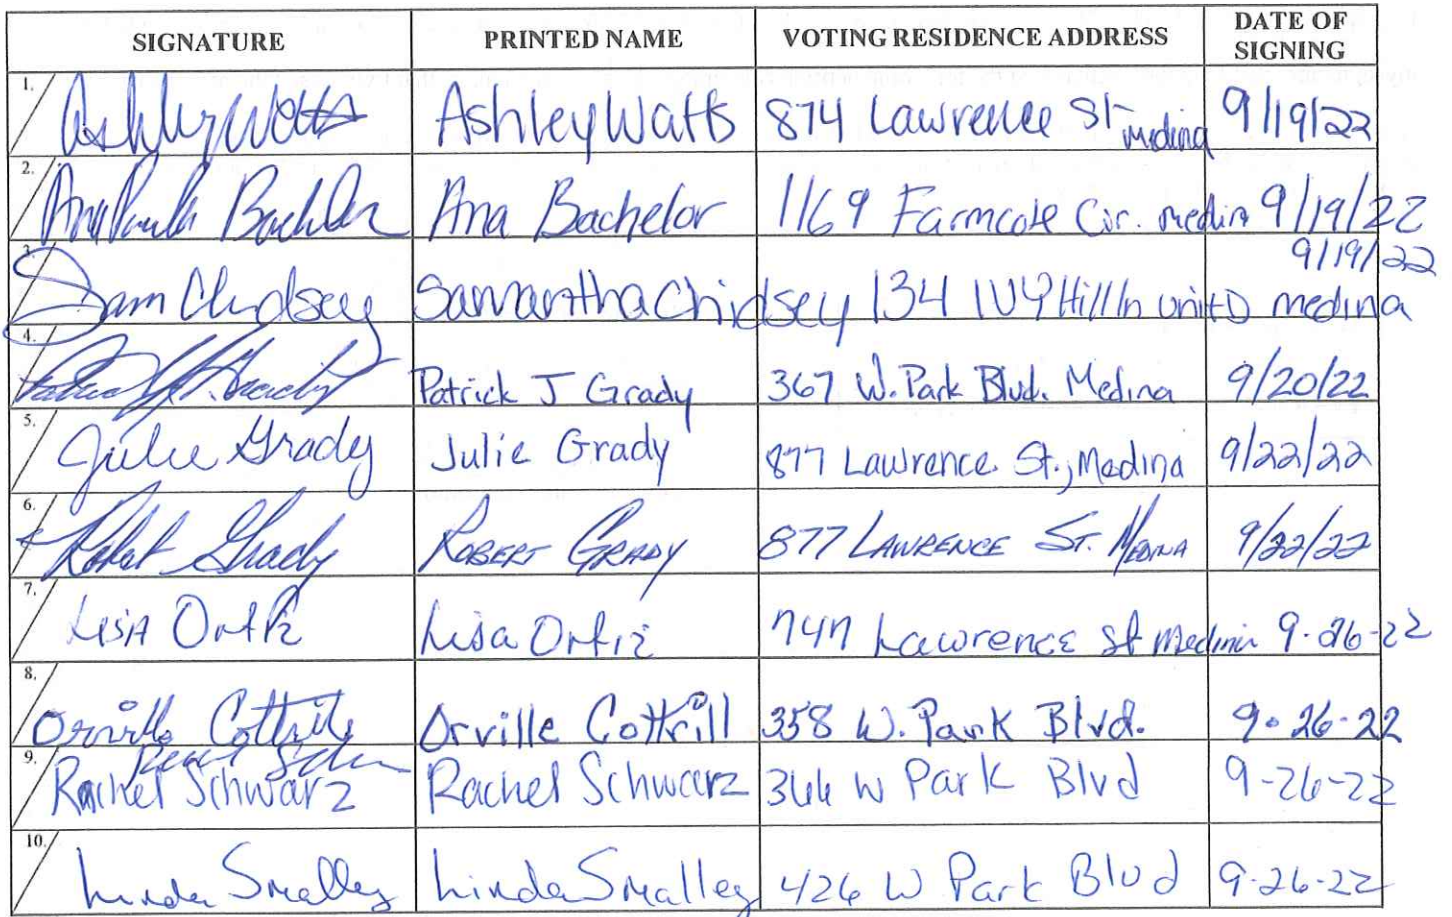 SIGNATURE PRINTED NAME VOTING RESIDENCE ADDRESS DATE OF SIGNING
1. Ashley Watts Ashley Watts 874 Lawrence St Medina 9/19/22
2. Ana Paula Bachelor Ana Bachelor 1169 Farmcote Cir. Medina 9/19/22
3. Sam Chidsey Samantha Chidsey 134 IVY Hill ln unit D medina 9/19/22
4. Patrick J. Grady Patrick J Grady 367 W. Park Blvd. Medina 9/20/22
5. Julie Grady Julie Grady 877 Lawrence St., Medina 9/22/22
6. Robert Grady ROBERT GRADY 877 LAWRENCE ST. MEDINA 9/22/22
7. LisA Ortiz Lisa Ortiz 747 Lawrence St Medina 9-26-22
8. Orville Cottrill Orville Cottrill 358 W. Park Blvd. 9-26-22
9. Rachel Schwarz Rachel Schwarz 366 W Park Blvd 9-26-22
10. Linda Smalley Linda Smalley 426 W Park Blvd 9-26-22